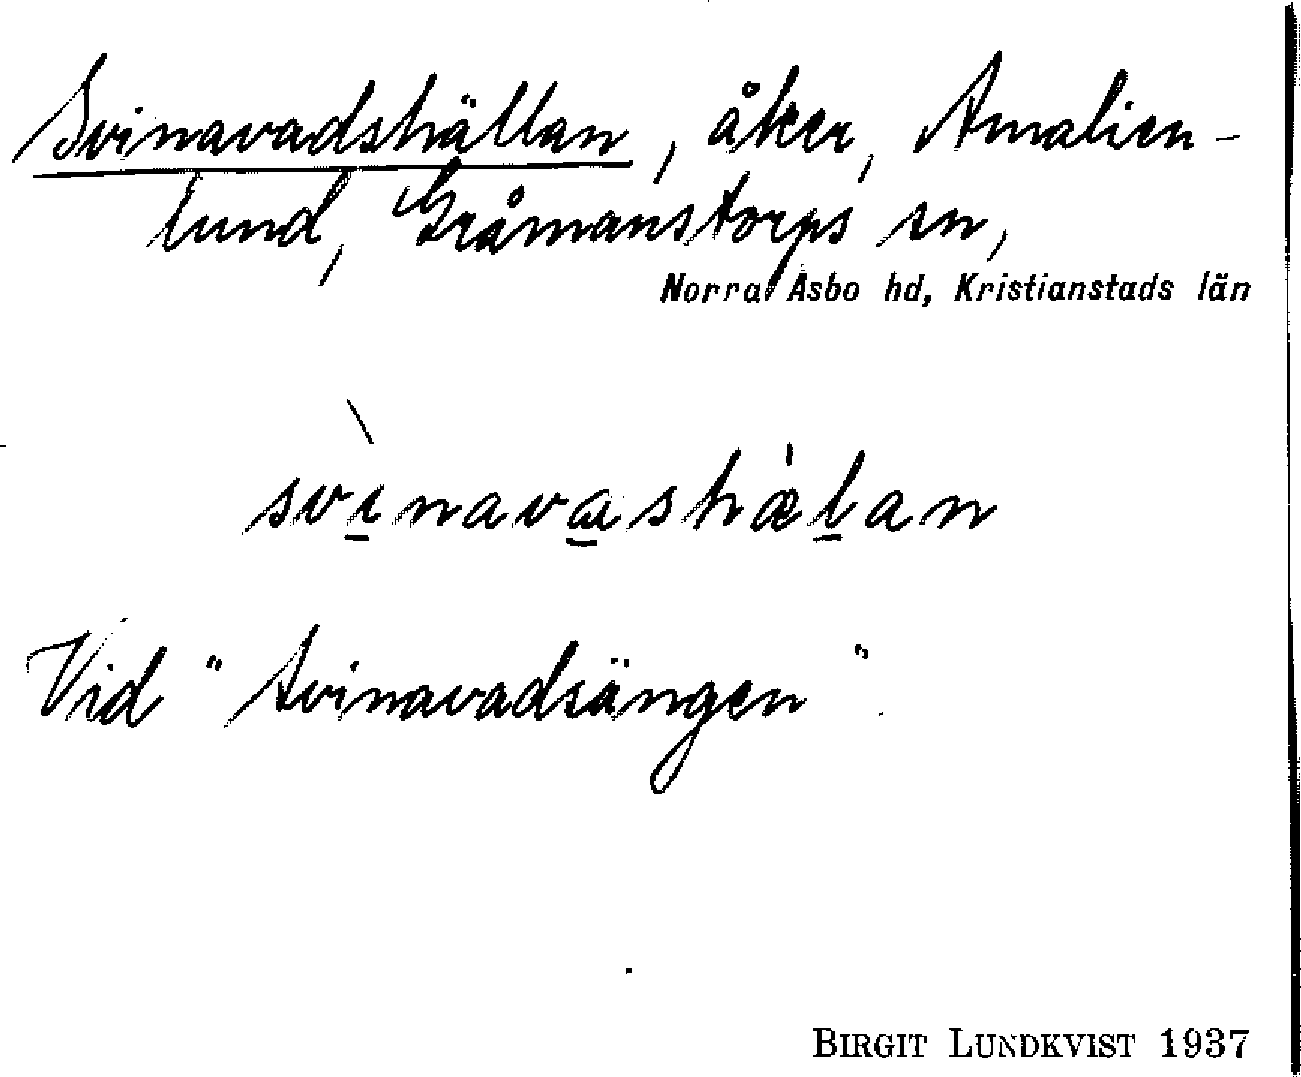 Svinavadshällan, åker, Amalien-
lund, Gråmanstorps sn,
Norra Åsbo hd, Kristianstads län
svìnavashælan
Vid "Svinavadsängen".
BIRGIT LUNDKVIST 1937